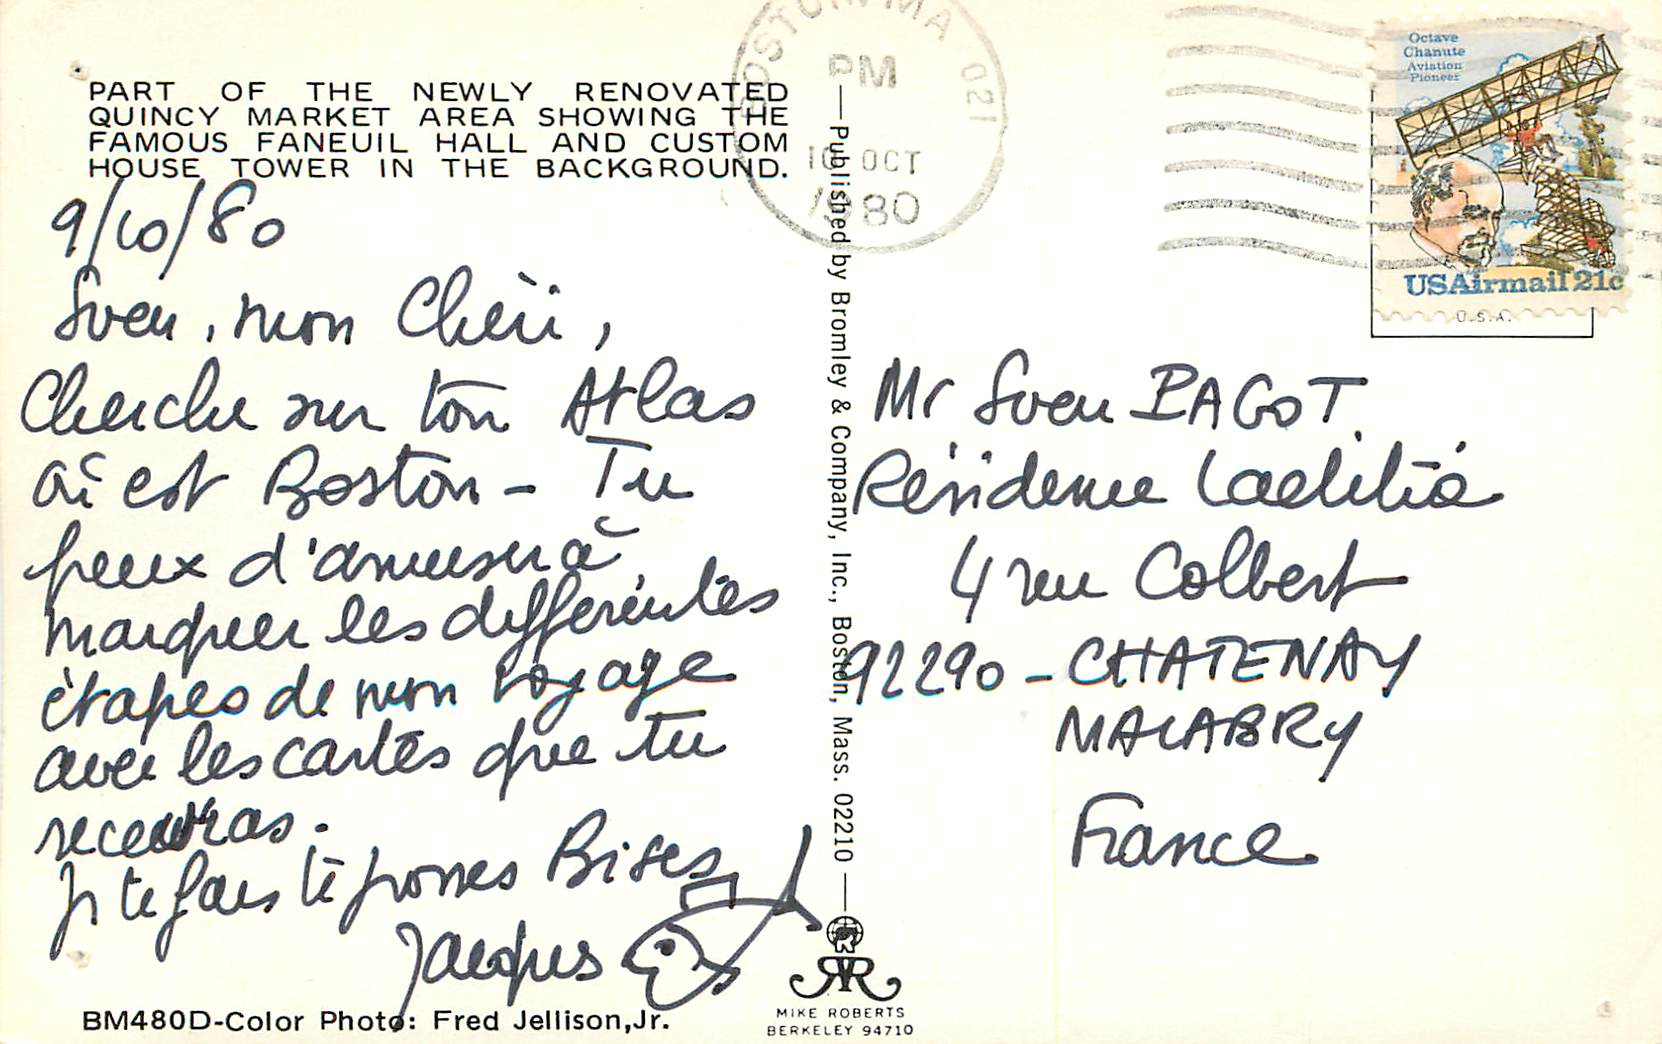 PART OF THE NEWLY RENOVATED
QUINCY MARKET AREA SHOWING THE
FAMOUS FANEUIL HALL AND CUSTOM
HOUSE TOWER IN THE BACKGROUND.
9/10/80
Sven, mon Chéri,
Cherche sur ton Atlas
où est Boston - Tu
peux t'amuser à
marquer les différentes
étapes de mon voyage
avec les cartes que tu
recevras.
Je te fais de grosses Bises
Jacques
BM480D-Color Photo: Fred Jellison, Jr.
Published by Bromley & Company, Inc., Boston, Mass. 02210
MIKE ROBERTS
BERKELEY 94710
BOSTON MA 021
PM
10 OCT
1980
Octave
Chanute
Aviation
Pioneer
USAirmail 21c
U.S.A.
Mr Sven PAGOT
Résidence Laetitia
4 rue Colbert
92290 - CHATENAY
MALABRY
France